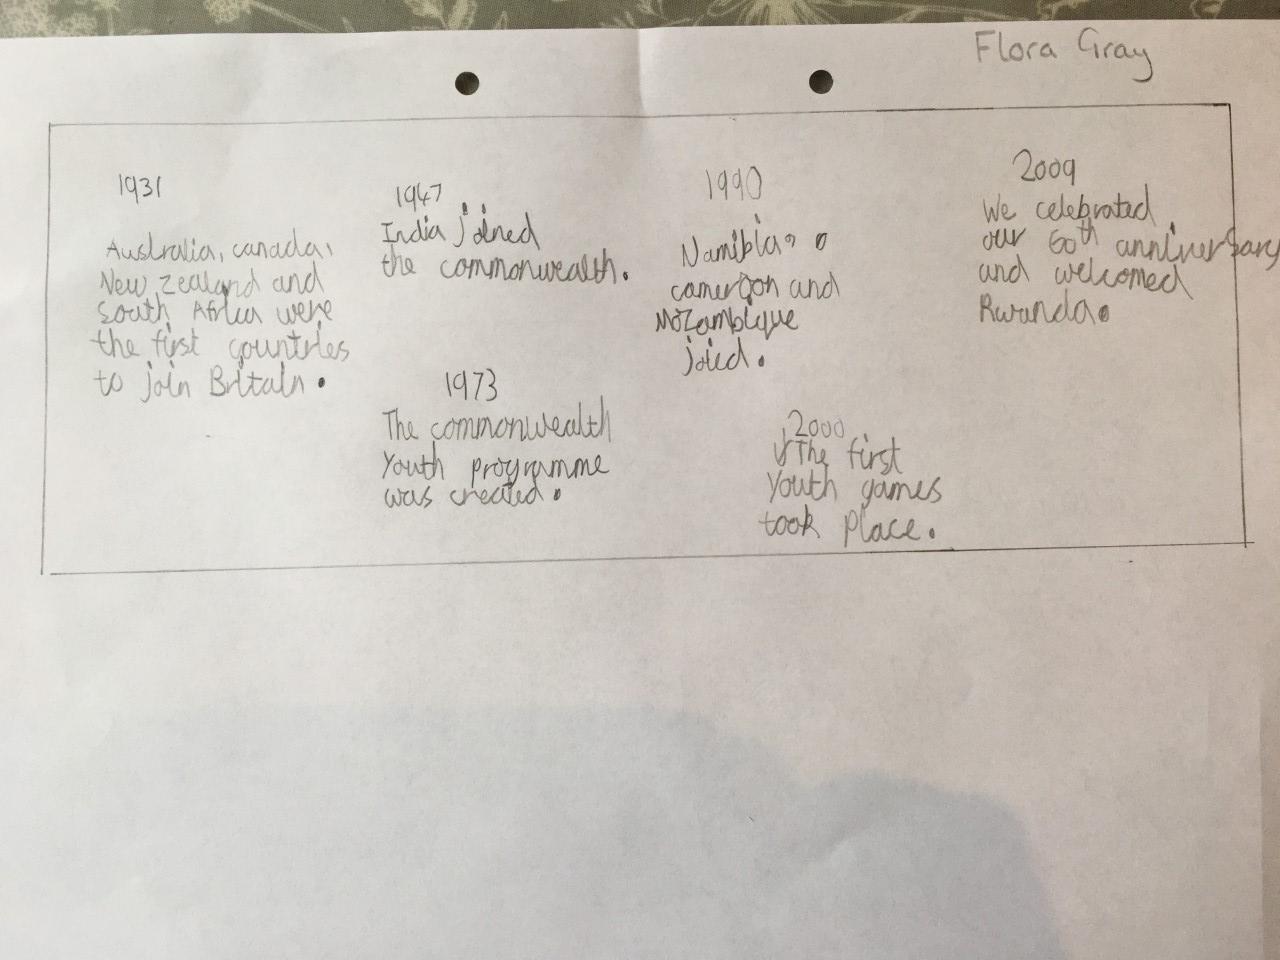 Flora Gray
1931
Australia, canada,
New Zealand and
South Africa were
the first countries
to join Britain.
1947
India joined
the commonwealth.
1973
The commonwealth
Youth programme
was created.
1990
Namibia,
cameroon and
Mozambique
joied.
2000
The first
Youth games
took place.
2009
We celebrated
our 60th anniversary
and welcomed
Rwanda.